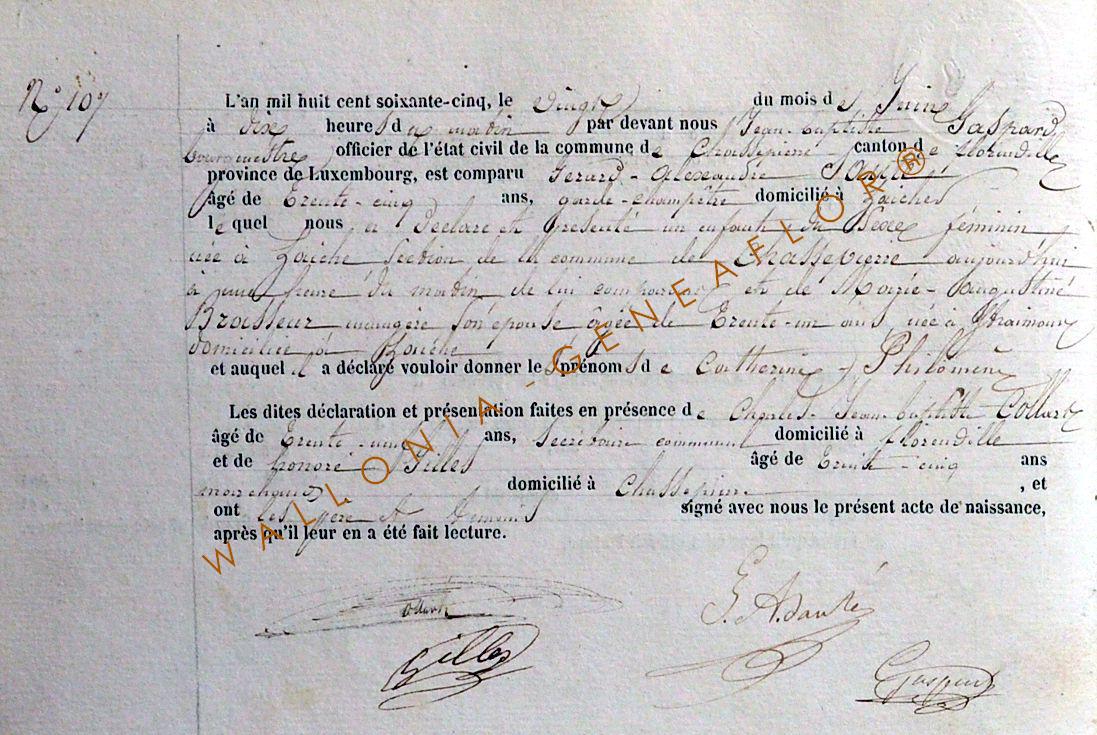 N° 107
L'an mil huit cent soixante-cinq, le vingt du mois de Juin
à dix heures du matin par devant nous Jean-baptiste Gaspard
bourgmestre officier de l'état civil de la commune de Chassepierre canton de florenville
province de Luxembourg, est comparu Gerard-Alexandre
âgé de Trente-cinq ans, garde-champêtre domicilié à Laiche
lequel nous a déclaré et présenté un enfant du sexe féminin
née à Laiche section de la commune de Chassepierre aujourd'hui
à une heure du matin de lui comparant et de Marie-Augustine
Brasseur ménagère son épouse âgée de Trente-un ans, née à
domiciliée à
et auquel il a déclaré vouloir donner les prénoms de Catherine Philomène
Les dites déclaration et présentation faites en présence de Charles-Jean-baptiste Collart
âgé de Trente ans, Secrétaire communal domicilié à florenville
et de honoré Gilles âgé de Trente-cinq ans
domicilié à Chassepierre , et
ont les père et témoins signé avec nous le présent acte de naissance,
après qu'il leur en a été fait lecture.
Collart
Gilles
Gaspard
WALLONIA-GENEAFLOR®